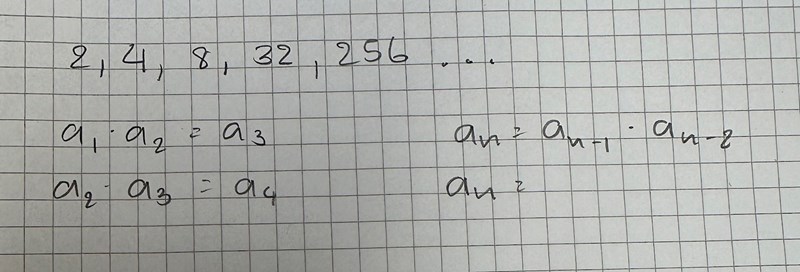 2, 4, 8, 32, 256 ...
a₁ · a₂ = a₃
aₙ = aₙ₋₁ · aₙ₋₂
a₂ · a₃ = a₄
aₙ =